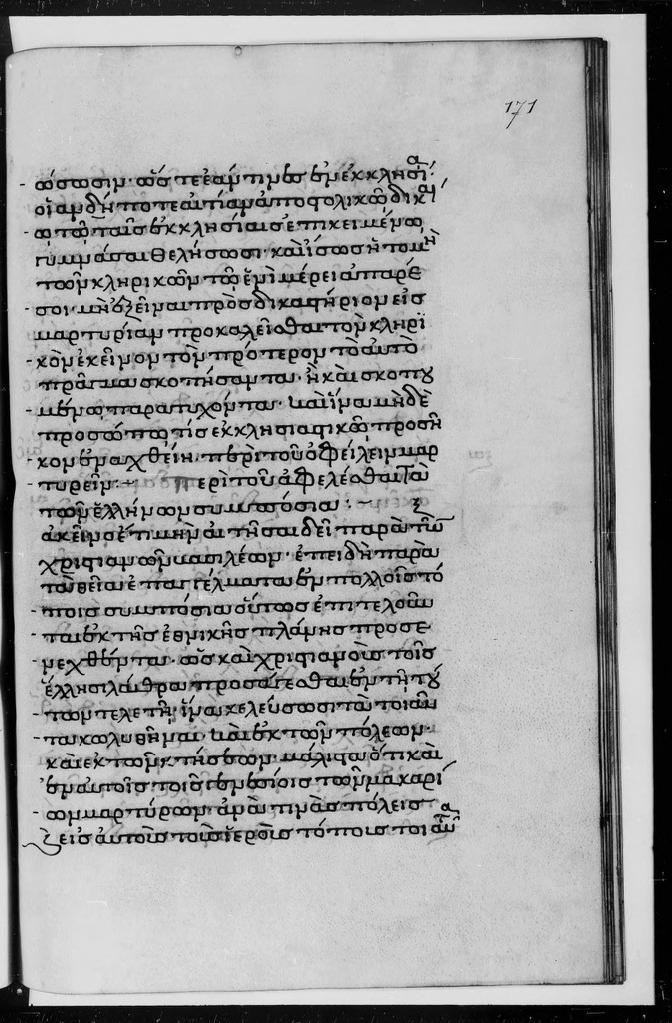 171
ώσωσιν· ὥστε ἐάν τινες ἐν ἐκκλησίᾳ
οἱανδήποτε αἰτίαν ἀποστολικῷ δικαί
ῳ τῷ ταῖς ἐκκλησίαις ἐπικειμένῳ
γυμνάσαι θελήσωσι· καὶ ἴσως ἡ τομὴ
τῶν κληρικῶν τῷ ἑνὶ μέρει ἀπαρέ
σοι· μὴ ἐξεῖναι πρὸς δικαστήριον εἰς
μαρτυρίαν προκαλεῖσθαι τὸν κληρι
κὸν ἐκεῖνον τὸν πρότερον τὸ αὐτὸ
πρᾶγμα σκοπήσαντα· ἢ καὶ σκοπου
μένῳ παρατυχόντα· καὶ ἵνα μηδὲ
προσώπῳ τίς ἐκκλησιαστικῷ προσή
κον ἐναχθείη περὶ τοῦ ὀφείλειν μαρ
τυρεῖν:~ Περὶ τοῦ ἀφελέσθαι τὰ
τῶν ἑλλήνων συμπόσια:~ ξ
ἀκεῖνο ἔτι μὴν αἰτῆσαι δεῖ παρὰ τῶν
χριστιανῶν βασιλέων· ἐπειδὴ παρὰ
τὰ θεῖα ἐπαγγέλματα ἐν πολλοῖς τό
ποις συμπόσια οὕτως ἐπιτελοῦν
ται ἐκ τῆς ἐθνικῆς πλάνης προσε
νεχθέντα· ὡς καὶ χριστιανοῖς τοῖς
ἕλλησι λάθρα προσάγεσθαι ἐν τῇ τού
των τελετῇ· ἵνα κελεύσωσι τὰ τοιαῦ
τα κωλυθῆναι· καὶ ἐκ τῶν πόλεων·
καὶ ἐκ τῶν κτήσεων· μάλιστα ὅτι καὶ
ἐν αὐτοῖς τοῖς γενεσίοις τῶν μακαρί
ων μαρτύρων· ἀνά τινας πόλεις
εἰς αὐτοὺς τοὺς ἱεροὺς τόπους τοιαῦ